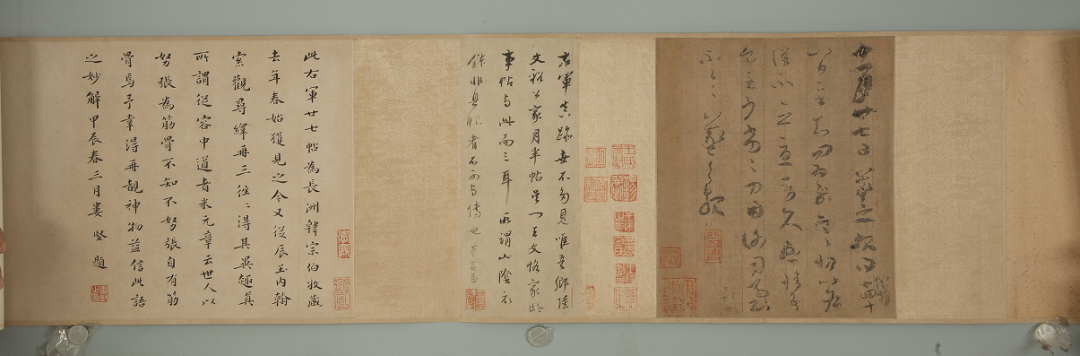 十一月廿七日羲之報得十四十
八日二書知問為慰寒切比各佳
不念憂勞久懸情吾
食至少劣劣力因謝司馬書
不一一羲之報
右軍真跡世不多見唯吾鄉陸
文裕公家月半帖吳門王文恪家此
事帖与此而三耳所謂山陰不
作非具眼者不可与傳也董其昌
此右軍廿七帖為長洲韓宗伯收藏
去年春始獲見之今又從辰玉內翰
索觀尋繹再三往〻得其異趣真
所謂從容中道者米元章云世人以
努張為筋骨不知不努張自有筋
骨焉予幸得再覩神物益信此語
之妙解甲辰春三月婁堅題